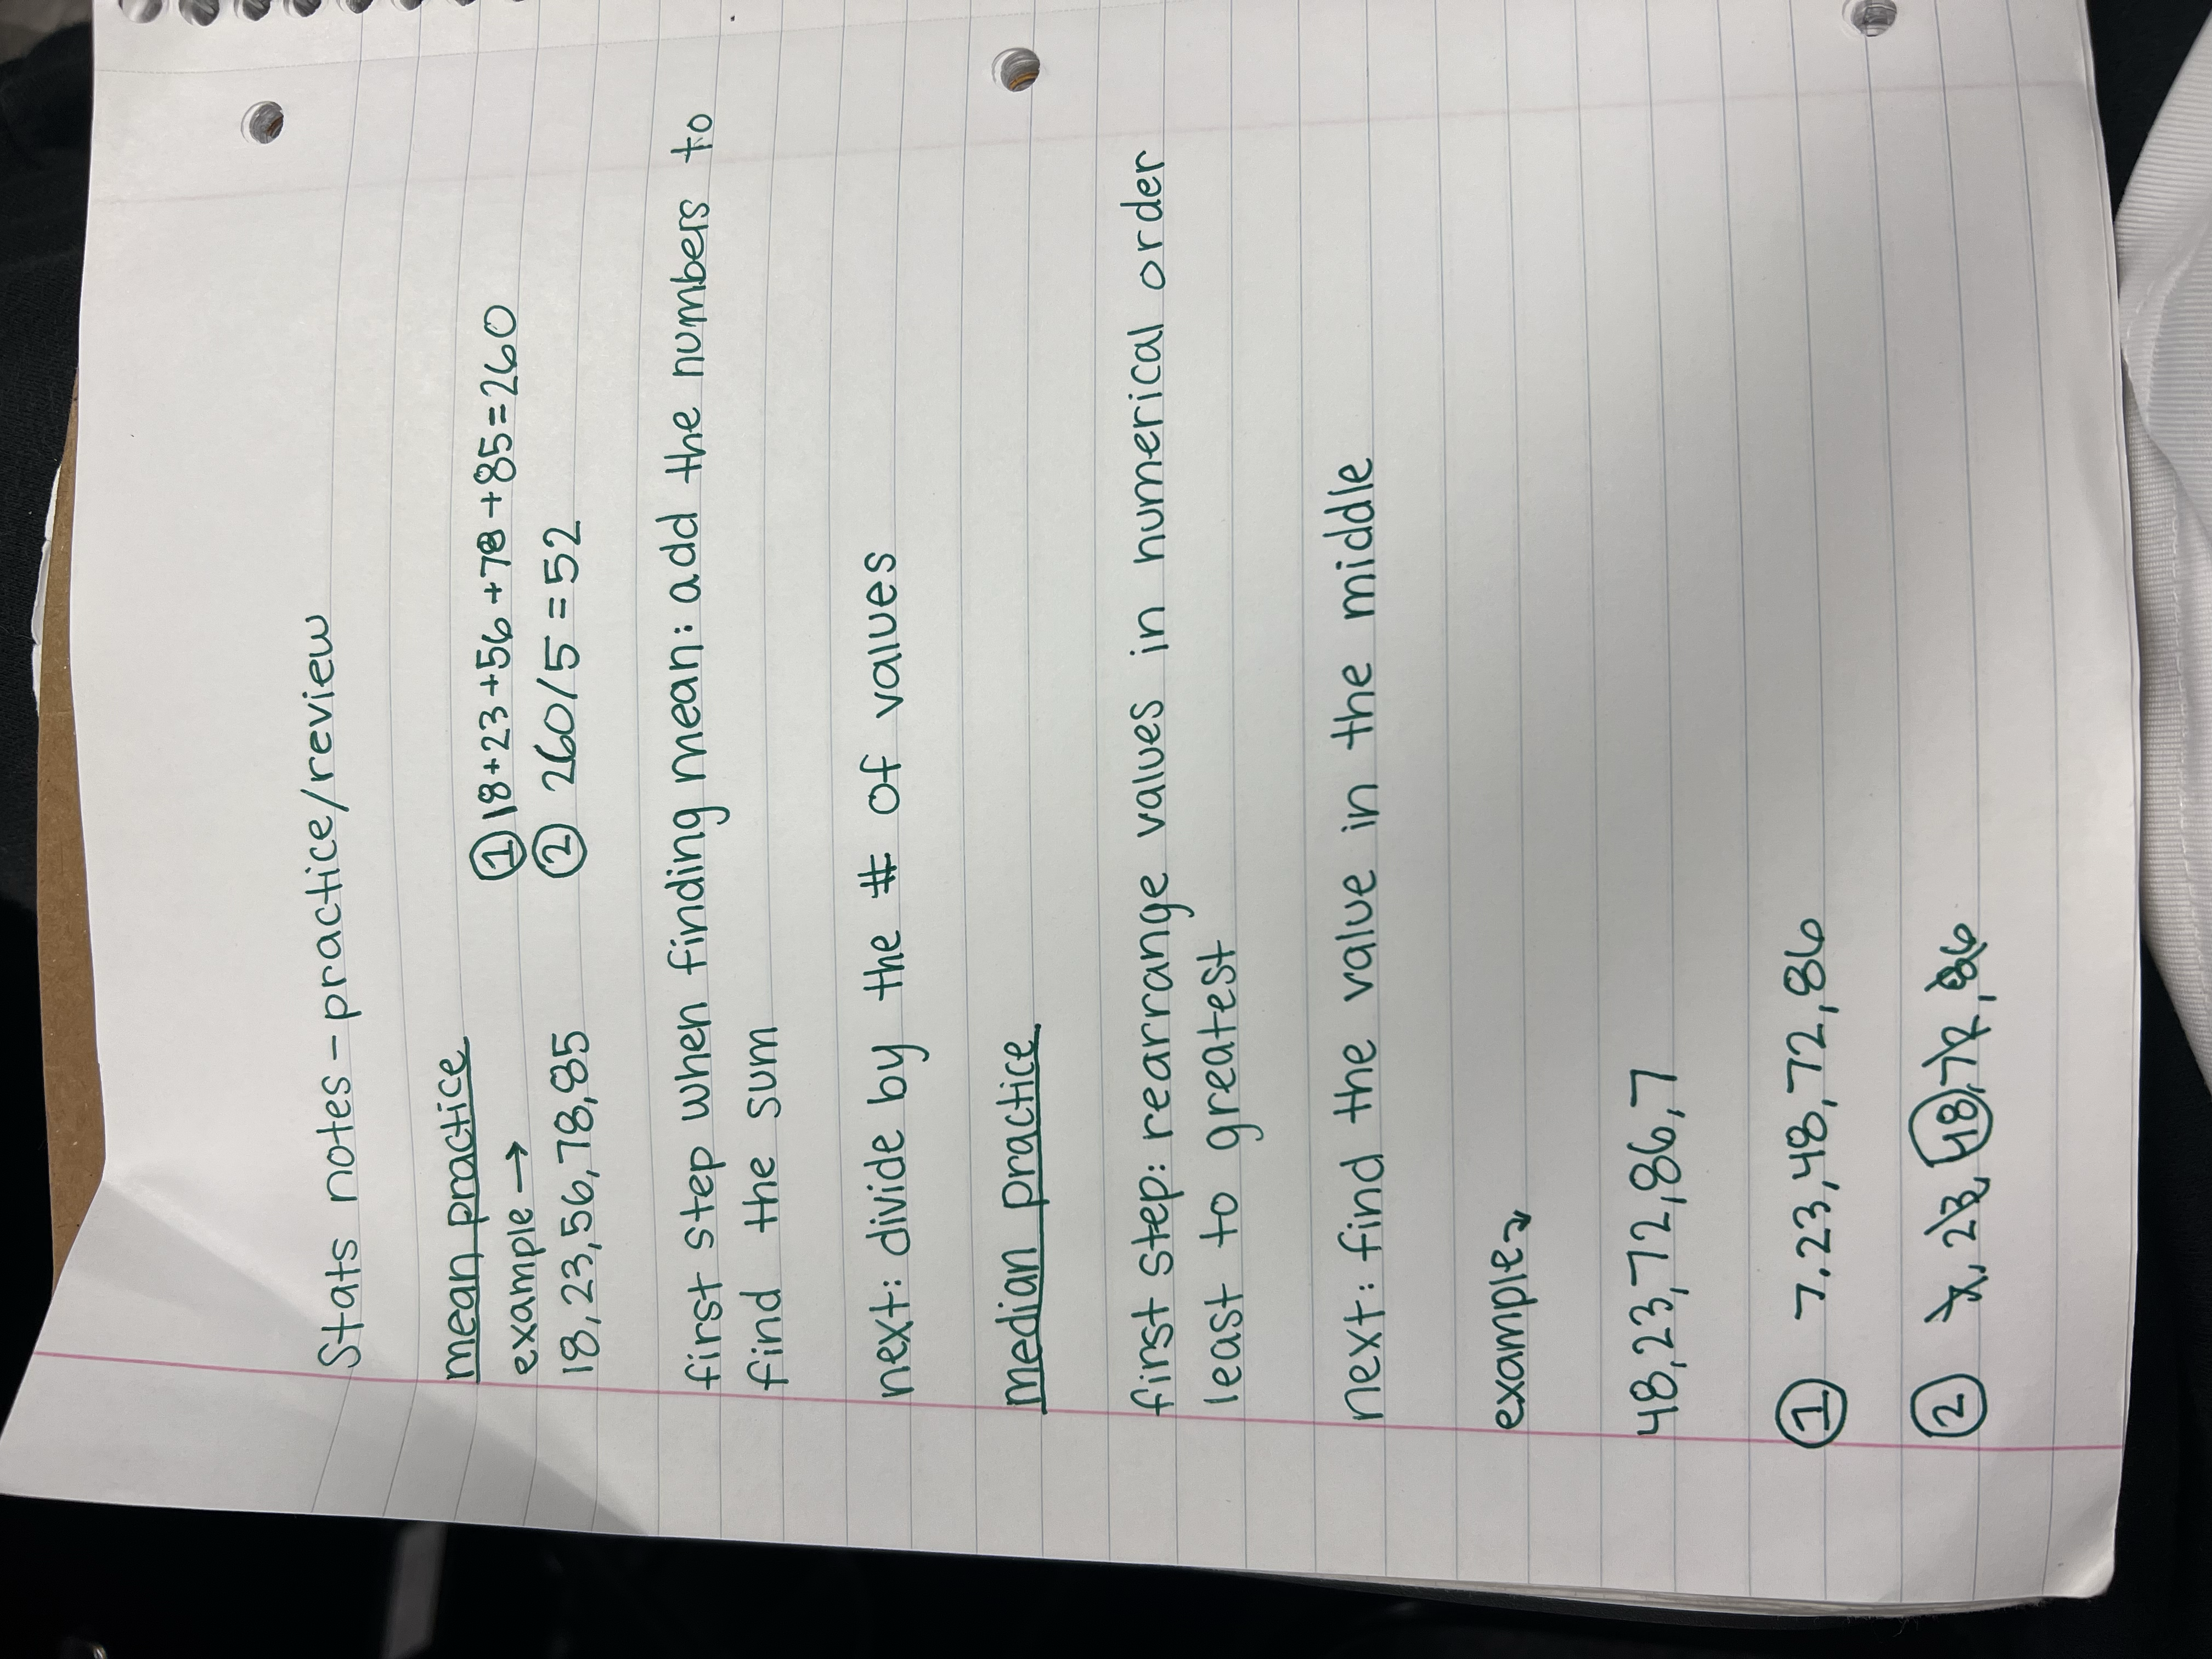 Stats notes - practice/review
mean practice
example → ① 18+23+56+78+85=260
18,23,56,78,85 ② 260/5=52
first step when finding mean: add the numbers to
find the sum
next: divide by the # of values
median practice
first step: rearrange values in numerical order
least to greatest
next: find the value in the middle
example↘
48,23,72,86,7
① 7.23,48,72,86
② 7, 23, 48, 72, 86